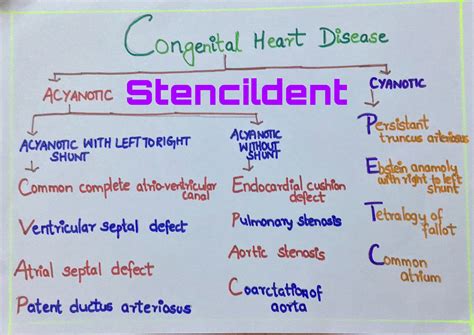 Congenital Heart Disease
ACYANOTIC
Stencildent
CYANOTIC
ACYANOTIC WITH LEFT TO RIGHT
SHUNT
Common complete atrio-ventricular
canal
Ventricular septal defect
Atrial septal defect
Patent ductus arteriosus
ACYANOTIC
WITHOUT
SHUNT
Endocardial cushion
defect
Pulmonary stenosis
Aortic stenosis
Coarctation of
aorta
Persistant
truncus arteriosus
Ebstein anamoly
with right to left
shunt
Tetralogy of
fallot
Common
atrium